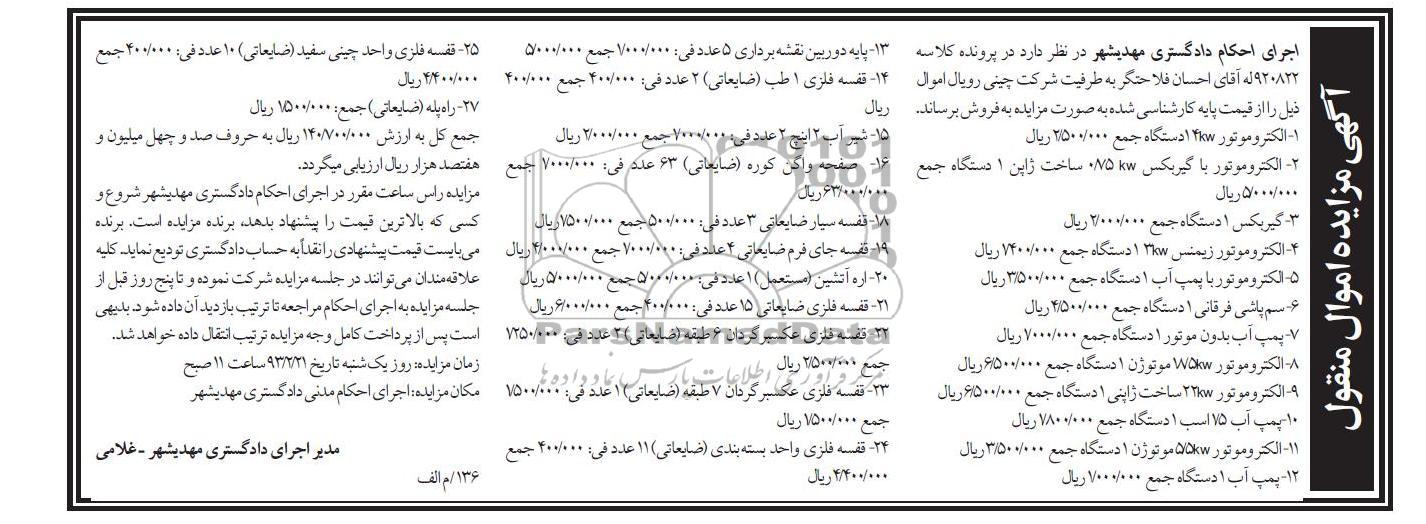 آگهی مزایده اموال منقول
اجرای احکام دادگستری مهدیشهر در نظر دارد در پرونده کلاسه
۹۲۰۸۲۲له آقای احسان فلاحتگر به طرفیت شرکت چینی رویال اموال
ذیل را از قیمت پایه کارشناسی شده به صورت مزایده به فروش برساند.
۱-الکتروموتور ۱۴kw ۱دستگاه جمع ۲/۵۰۰/۰۰۰ ریال
۲- الکتروموتور با گیربکس ۰/۷۵ kw ساخت ژاپن ۱ دستگاه جمع
۵/۰۰۰/۰۰۰ ریال
۳-گیربکس ۱ دستگاه جمع ۲/۰۰۰/۰۰۰ ریال
۴-الکتروموتور زیمنس ۳kw ۱ دستگاه جمع ۱/۴۰۰/۰۰۰ ریال
۵-الکتروموتور با پمپ آب ۱ دستگاه جمع ۳/۵۰۰/۰۰۰ریال
۶-سم‌پاشی فرقانی ۱دستگاه جمع ۴/۵۰۰/۰۰۰ریال
۷-پمپ آب بدون موتور ۱ دستگاه جمع ۱/۰۰۰/۰۰۰ ریال
۸-الکتروموتور ۱۸/۵kw موتوژن ۱ دستگاه جمع ۶/۵۰۰/۰۰۰ریال
۹-الکتروموتور ۲۲kw ساخت ژاپنی ۱ دستگاه جمع ۶/۵۰۰/۰۰۰ریال
۱۰-پمپ آب ۷۵ اسب ۱ دستگاه جمع ۱/۸۰۰/۰۰۰ ریال
۱۱-الکتروموتور ۵/۵kw موتوژن ۱ دستگاه جمع ۳/۵۰۰/۰۰۰ریال
۱۲-پمپ آب ۱ دستگاه جمع ۱/۰۰۰/۰۰۰ ریال
۱۳-پایه دوربین نقشه برداری ۵ عدد فی: ۱/۰۰۰/۰۰۰ جمع ۵/۰۰۰/۰۰۰
۱۴- قفسه فلزی ۱ طب (ضایعاتی) ۲ عدد فی: ۴۰۰/۰۰۰ جمع ۴۰۰/۰۰۰
ریال
۱۵- شیر آب ۲ اینچ ۲ عدد فی: ۱/۰۰۰/۰۰۰ جمع ۲/۰۰۰/۰۰۰ ریال
۱۶- صفحه واگن کوره (ضایعاتی) ۶۳ عدد فی: ۱/۰۰۰/۰۰۰ جمع
۶۳/۰۰۰/۰۰۰ریال
۱۸-قفسه سیار ضایعاتی ۳عدد فی: ۵۰۰/۰۰۰ جمع ۱/۵۰۰/۰۰۰ریال
۱۹- قفسه جای فرم ضایعاتی ۴عدد فی: ۱/۰۰۰/۰۰۰ جمع ۴/۰۰۰/۰۰۰ ریال
۲۰-اره آتشین (مستعمل) ۱عدد فی: ۵/۰۰۰/۰۰۰ جمع ۵/۰۰۰/۰۰۰ ریال
۲۱- قفسه فلزی ضایعاتی ۱۵عدد فی: ۴۰۰/۰۰۰ جمع ۶/۰۰۰/۰۰۰ریال
۲۲-قفسه فلزی عکسبرگردان ۶ طبقه (ضایعاتی) ۲ عدد فی: ۱/۲۵۰/۰۰۰
جمع ۲/۵۰۰/۰۰۰ ریال
۲۳- قفسه فلزی عکسبرگردان ۷ طبقه (ضایعاتی) ۱ عدد فی: ۱/۵۰۰/۰۰۰
جمع ۱/۵۰۰/۰۰۰ ریال
۲۴- قفسه فلزی واحد بسته بندی (ضایعاتی) ۱۱ عدد فی: ۴۰۰/۰۰۰ جمع
۴/۴۰۰/۰۰۰ ریال
۲۵- قفسه فلزی واحد چینی سفید (ضایعاتی) ۱۰ عدد فی: ۴۰۰/۰۰۰ جمع
۴/۴۰۰/۰۰۰ ریال
۲۷-راه پله (ضایعاتی) جمع: ۱/۵۰۰/۰۰۰ ریال
جمع کل به ارزش ۱۴۰/۷۰۰/۰۰۰ ریال به حروف صد و چهل میلیون و
هفتصد هزار ریال ارزیابی میگردد.
مزایده راس ساعت مقرر در اجرای احکام دادگستری مهدیشهر شروع و
کسی که بالاترین قیمت را پیشنهاد بدهد، برنده مزایده است. برنده
می‌بایست قیمت پیشنهادی را نقداً به حساب دادگستری تودیع نماید. کلیه
علاقه‌مندان می‌توانند در جلسه مزایده شرکت نموده و تا پنج روز قبل از
جلسه مزایده به اجرای احکام مراجعه تا ترتیب بازدید آن داده شود. بدیهی
است پس از پرداخت کامل وجه مزایده ترتیب انتقال داده خواهد شد.
زمان مزایده: روز یک شنبه تاریخ ۹۳/۲/۲۱ ساعت ۱۱ صبح
مکان مزایده: اجرای احکام مدنی دادگستری مهدیشهر
مدیر اجرای دادگستری مهدیشهر -غلامی
۱۳۶/م الف
ParsNamadData
مرکز فرآوری اطلاعات پارس نماد داده ها